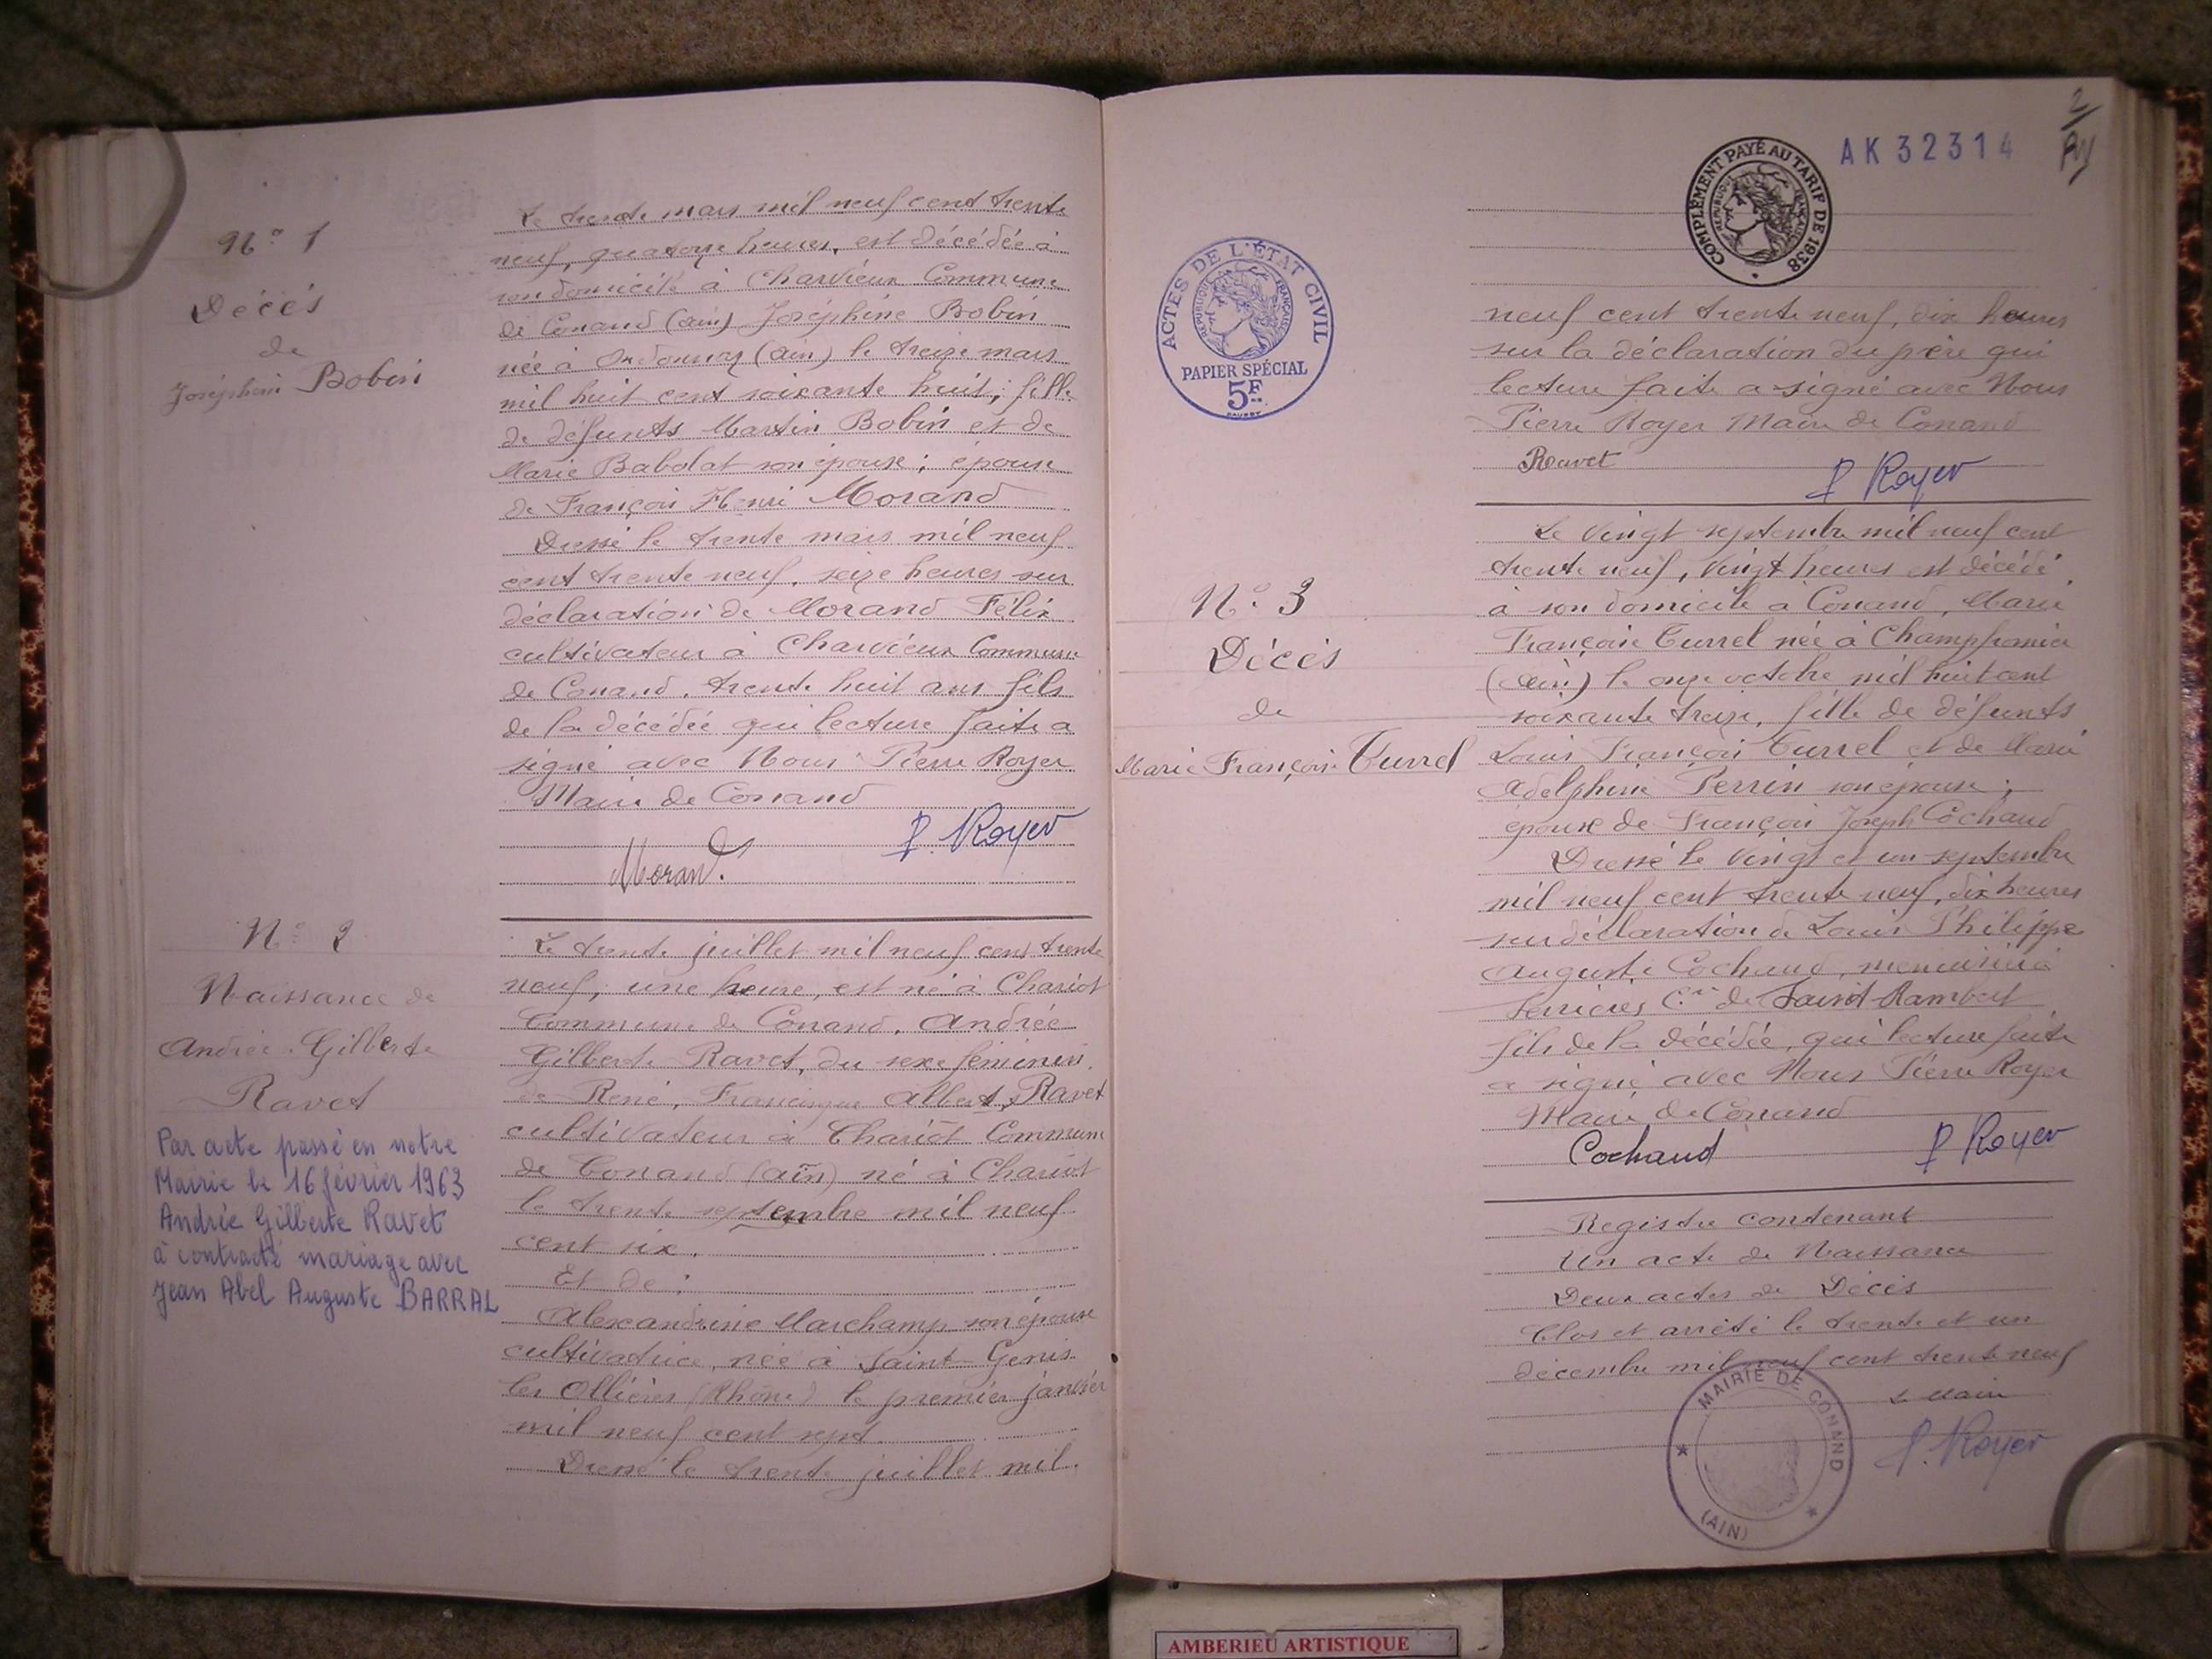 N° 1
Décès
de
Joséphine Bobin
Le trente mars mil neuf cent trente
neuf, quatorze heures, est décédée à
son domicile à Charvieux Commune
de Conand (Ain) Joséphine Bobin
née à Ordonnaz (Ain) le treize mars
mil huit cent soixante huit ; fille
de défunts Martin Bobin et de
Marie Babolat son épouse ; épouse
de François Henri Morand
Dressé le trente mars mil neuf
cent trente neuf, seize heures sur
déclaration de Morand Félix
cultivateur à Charvieux Commune
de Conand, trente huit ans fils
de la décédée qui lecture faite a
signé avec Nous Pierre Royer
Maire de Conand
P. Royer
Morand.
N° 2
Naissance de
Andrée Gilberte
Ravet
Par acte passé en notre
Mairie le 16 février 1963
Andrée Gilberte Ravet
à contracté mariage avec
Jean Abel Auguste BARRAL
Le trente juillet mil neuf cent trente
neuf, une heure, est né à Chariot
Commune de Conand, Andrée
Gilberte Ravet, du sexe féminin
de René, Francisque Albert, Ravet
cultivateur à Chariot Commune
de Conand (Ain) né à Chariot
le trente septembre mil neuf
cent six.
Et de :
Alexandrine Marchamp son épouse
cultivatrice, née à Saint-Genis
les Ollières (Rhône) le premier janvier
mil neuf cent sept.
Dressé le trente juillet mil
2
AK 32314
COMPLÉMENT PAYÉ AU TARIF DE 1938
RÉPUBLIQUE FRANÇAISE
ACTES DE L'ÉTAT CIVIL
RÉPUBLIQUE FRANÇAISE
PAPIER SPÉCIAL
5F
neuf cent trente neuf, dix heures
sur la déclaration du père qui
lecture faite a signé avec Nous
Pierre Royer Maire de Conand
Ravet
P Royer
N° 3
Décès
de
Marie Françoise Turrel
Le vingt septembre mil neuf cent
trente neuf, vingt heures est décédé
à son domicile à Conand, Marie
Françoise Turrel née à Champfromier
(Ain) le onze octobre mil huit cent
soixante treize, fille de défunts
Louis François Turrel et de Marie
Adelphine Perrin son épouse ;
épouse de François Joseph Cochaud
Dressé le vingt et un septembre
mil neuf cent trente neuf, dix heures
sur déclaration de Louis Philippe
Auguste Cochaud, menuisier à
Serrières Cne de Saint-Rambert
fils de la décédée, qui lecture faite
a signé avec Nous Pierre Royer
Maire de Conand
Cochaud
P Royer
Registre contenant
Un acte de Naissance
Deux actes de Décès
Clos et arrêté le trente et un
décembre mil neuf cent trente neuf
Le Maire
P. Royer
MAIRIE DE CONAND
(AIN)
AMBERIEU ARTISTIQUE